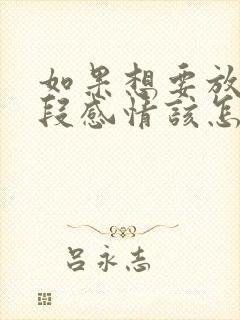 如果想要放
段感情該怎
呂永志